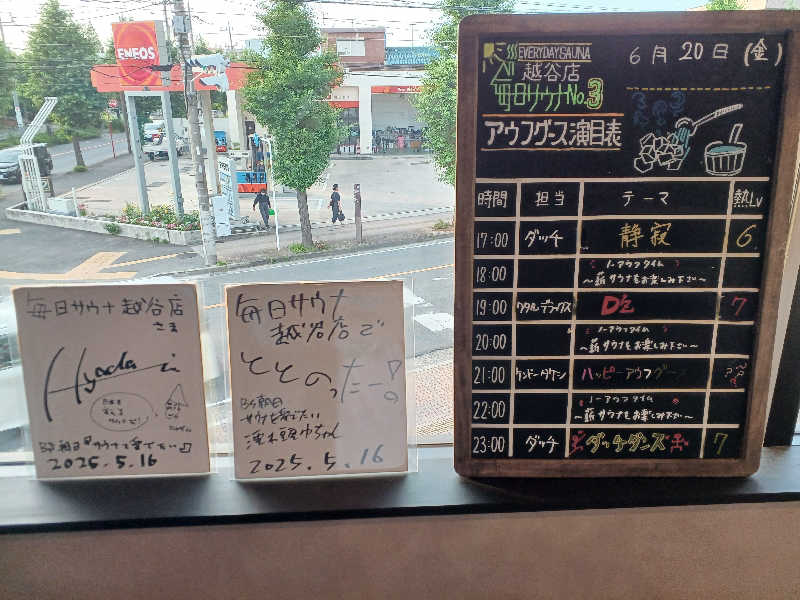 ENEOS
EVERYDAY SAUNA
越谷店
毎日サウナNo.3
アウフグース演目表
6月20日(金)
時間 担当 テーマ 熱Lv
17:00 ダッチ 静寂 6
18:00 ノーアウフタイム
～薪サウナをお楽しみ下さい～
19:00 ワタルデラックス D'z 7
20:00 ノーアウフタイム
～薪サウナをお楽しみ下さい～
21:00 ケンドーダケシ ハッピーアウフグース
22:00 ノーアウフタイム
～薪サウナをお楽しみ下さい～
23:00 ダッチ ダッチダンス 7
毎日サウナ 越谷店
さま
BS朝日 サウナを愛でたい
2025.5.16
毎日サウナ
越谷店で
ととのったー!
BS朝日
サウナを愛でたい
清水みさとちゃん
2025.5.16